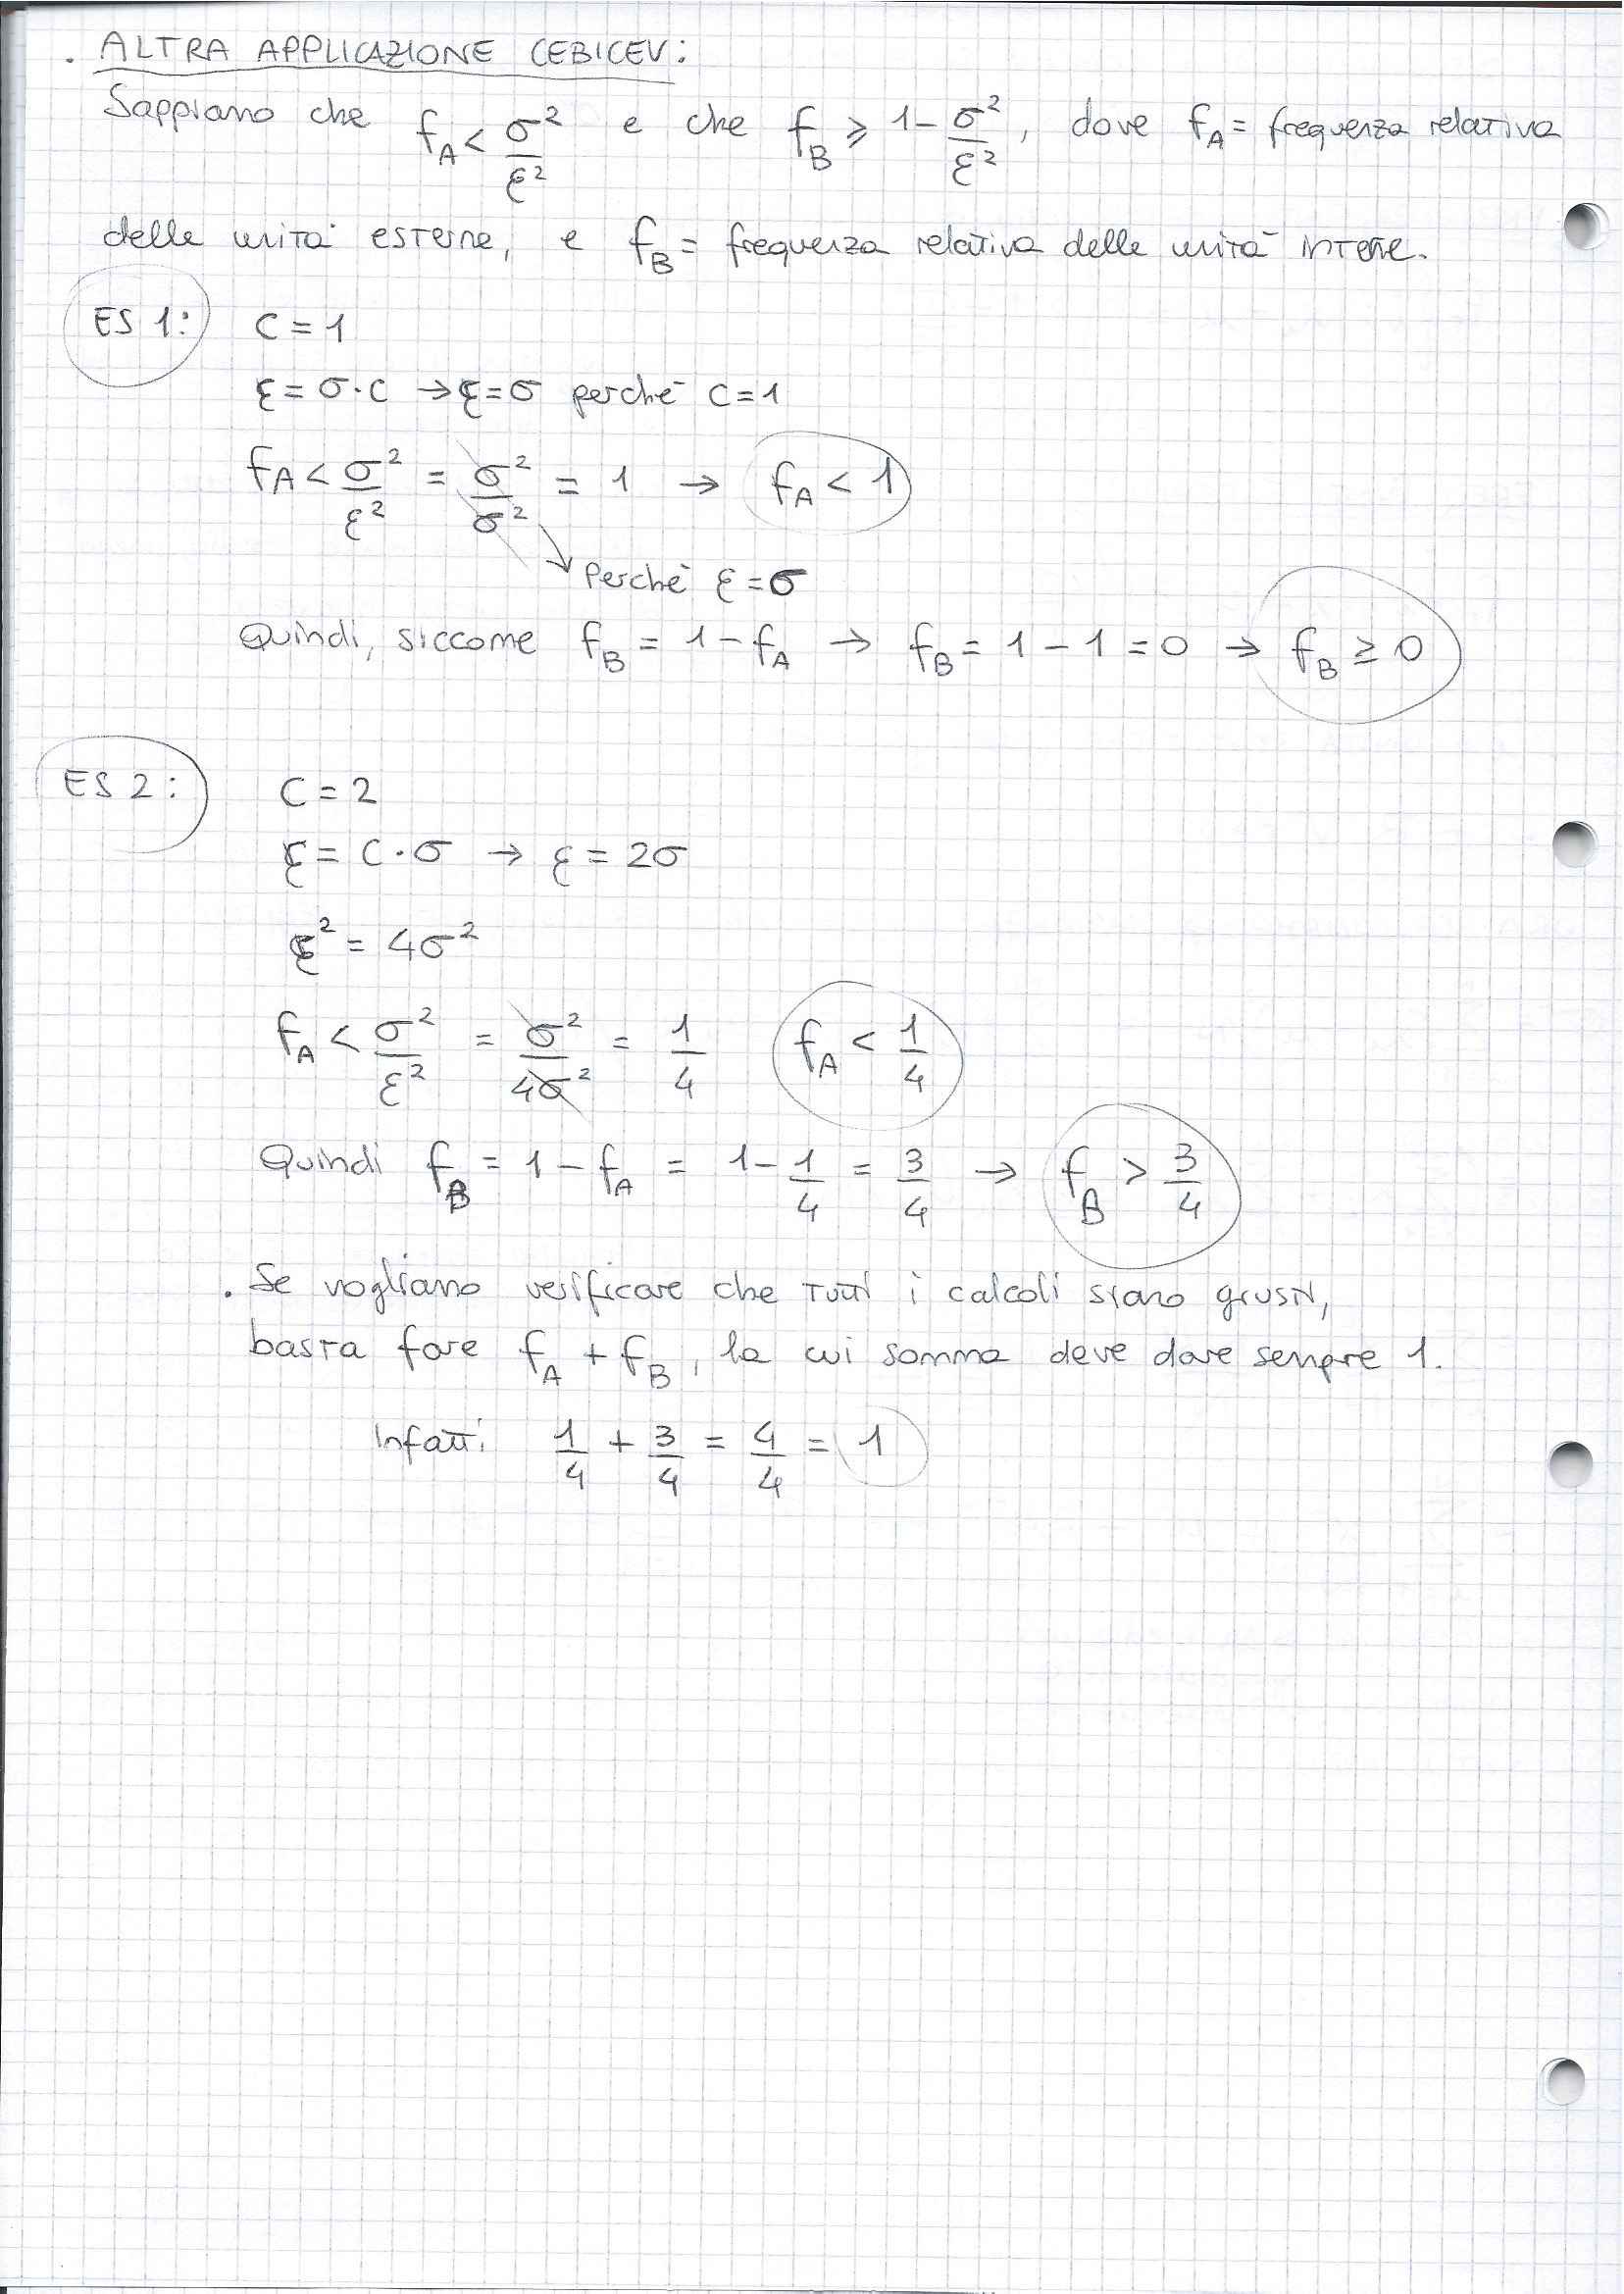 . ALTRA APPLICAZIONE CEBICEV:
Sappiamo che f_A < σ²/ε² e che f_B ⩾ 1 - σ²/ε², dove f_A = frequenza relativa
delle unità esterne, e f_B = frequenza relativa delle unità interne.
ES 1: C = 1
ε = σ·C → ε = σ perché C = 1
f_A < σ²/ε² = σ²/σ² = 1 → f_A < 1
perché ε = σ
Quindi, siccome f_B = 1 - f_A → f_B = 1 - 1 = 0 → f_B ≥ 0
ES 2: C = 2
ε = C·σ → ε = 2σ
ε² = 4σ²
f_A < σ²/ε² = σ²/4σ² = 1/4 f_A < 1/4
Quindi f_B = 1 - f_A = 1 - 1/4 = 3/4 → f_B > 3/4
. Se vogliamo verificare che tutti i calcoli siano giusti,
basta fare f_A + f_B, la cui somma deve dare sempre 1.
Infatti 1/4 + 3/4 = 4/4 = 1